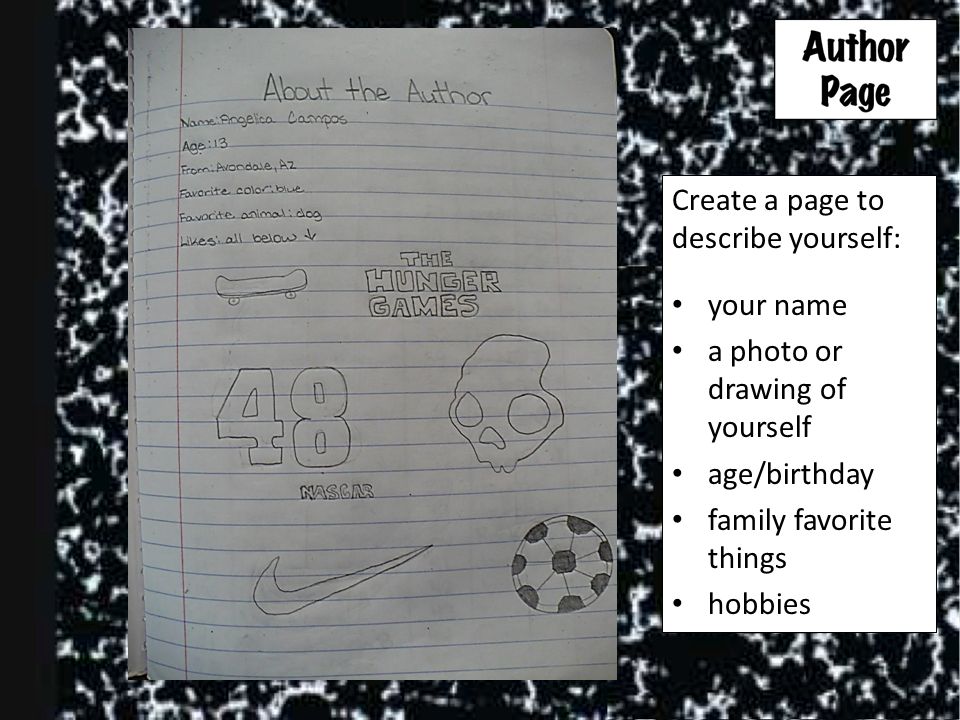 Author
Page
About the Author
Name: Angelica Campos
Age: 13
From: Avondale, AZ
Favorite color: blue
Favorite animal: dog
Likes: all below ↓
THE
HUNGER
GAMES
48
NASCAR
Create a page to
describe yourself:
• your name
• a photo or
drawing of
yourself
• age/birthday
• family favorite
things
• hobbies